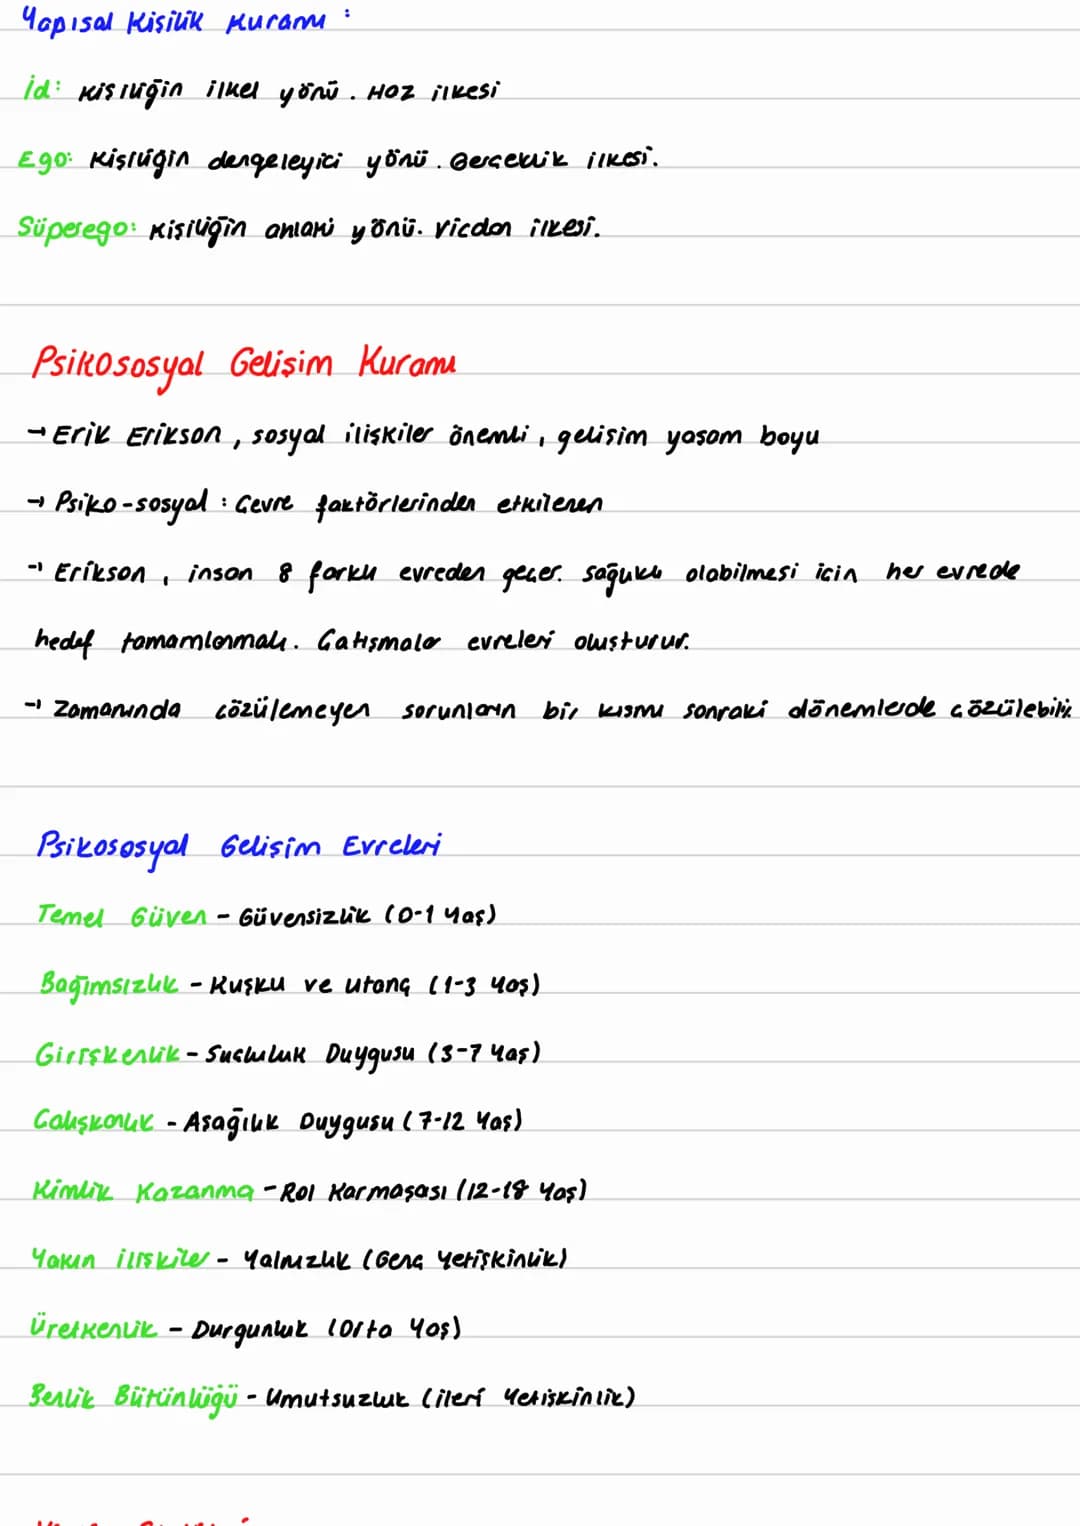 Yapısal Kişilik Kuramı :
İd: Kişiliğin ilkel yönü. Haz ilkesi
Ego: Kişiliğin dengeleyici yönü. Gerçeklik ilkesi.
Süperego: Kişiliğin ahlaki yönü. Vicdan ilkesi.
Psikososyal Gelişim Kuramı
→ Erik Erikson, sosyal ilişkiler önemli, gelişim yaşam boyu
→ Psiko-sosyal : Çevre faktörlerinden etkilenen
→ Erikson, insan 8 farklı evreden geçer. Sağlıklı olabilmesi için her evrede
hedef tamamlanmalı. Çatışmalar evreleri oluşturur.
→ Zamanında çözülemeyen sorunların bir kısmı sonraki dönemlerde çözülebilir.
Psikososyal Gelişim Evreleri
Temel Güven - Güvensizlik (0-1 Yaş)
Bağımsızlık - Kuşku ve utanç (1-3 Yaş)
Girişkenlik - Suçluluk Duygusu (3-7 Yaş)
Çalışkanlık - Aşağılık Duygusu (7-12 Yaş)
Kimlik Kazanma - Rol Karmaşası (12-18 Yaş)
Yakın ilişkiler - Yalnızlık (Genç Yetişkinlik)
Üretkenlik - Durgunluk (Orta Yaş)
Benlik Bütünlüğü - Umutsuzluk (ileri Yetişkinlik)